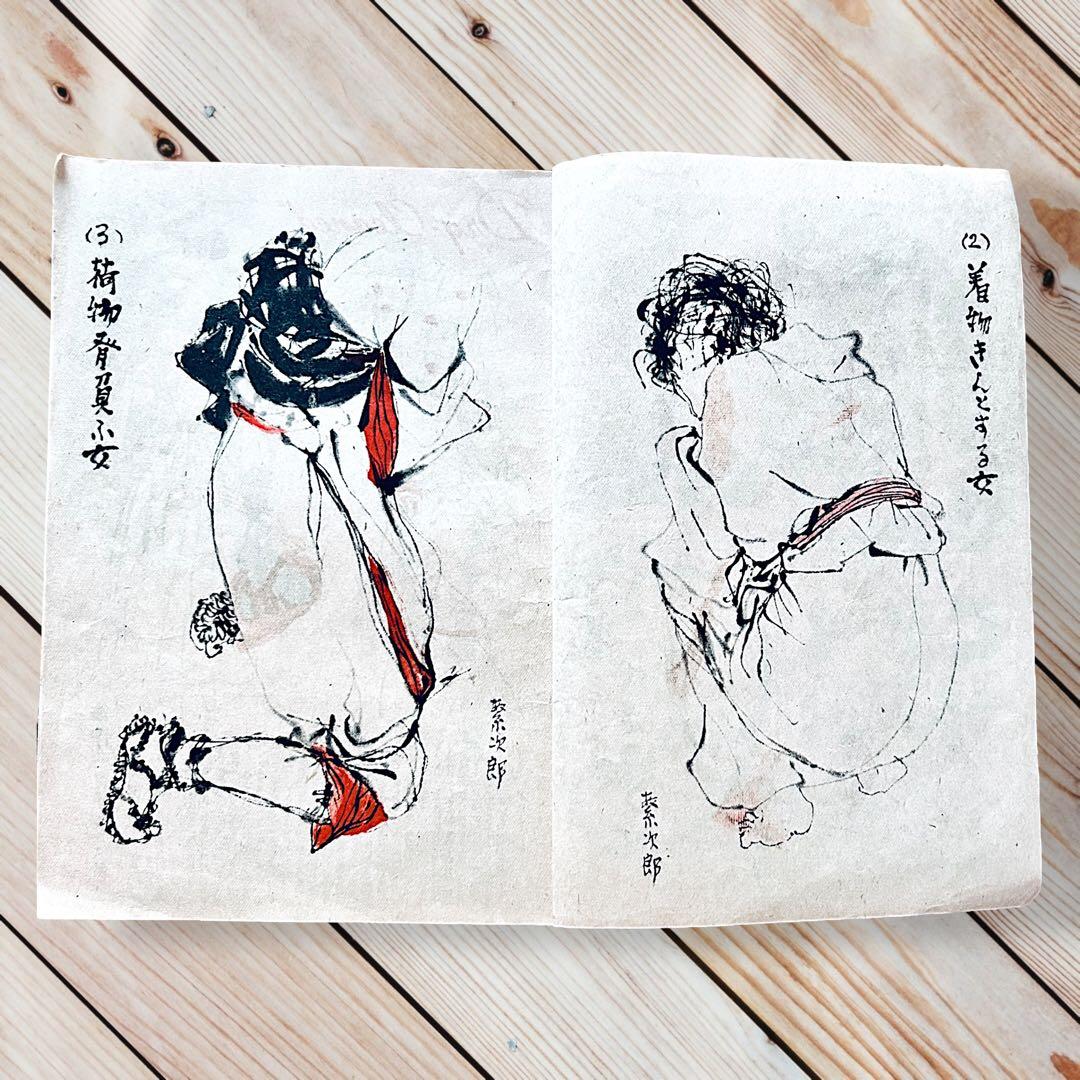 (2)
着物きんとする女
繁次郎
(3)
荷物脊負ふ女
繁次郎